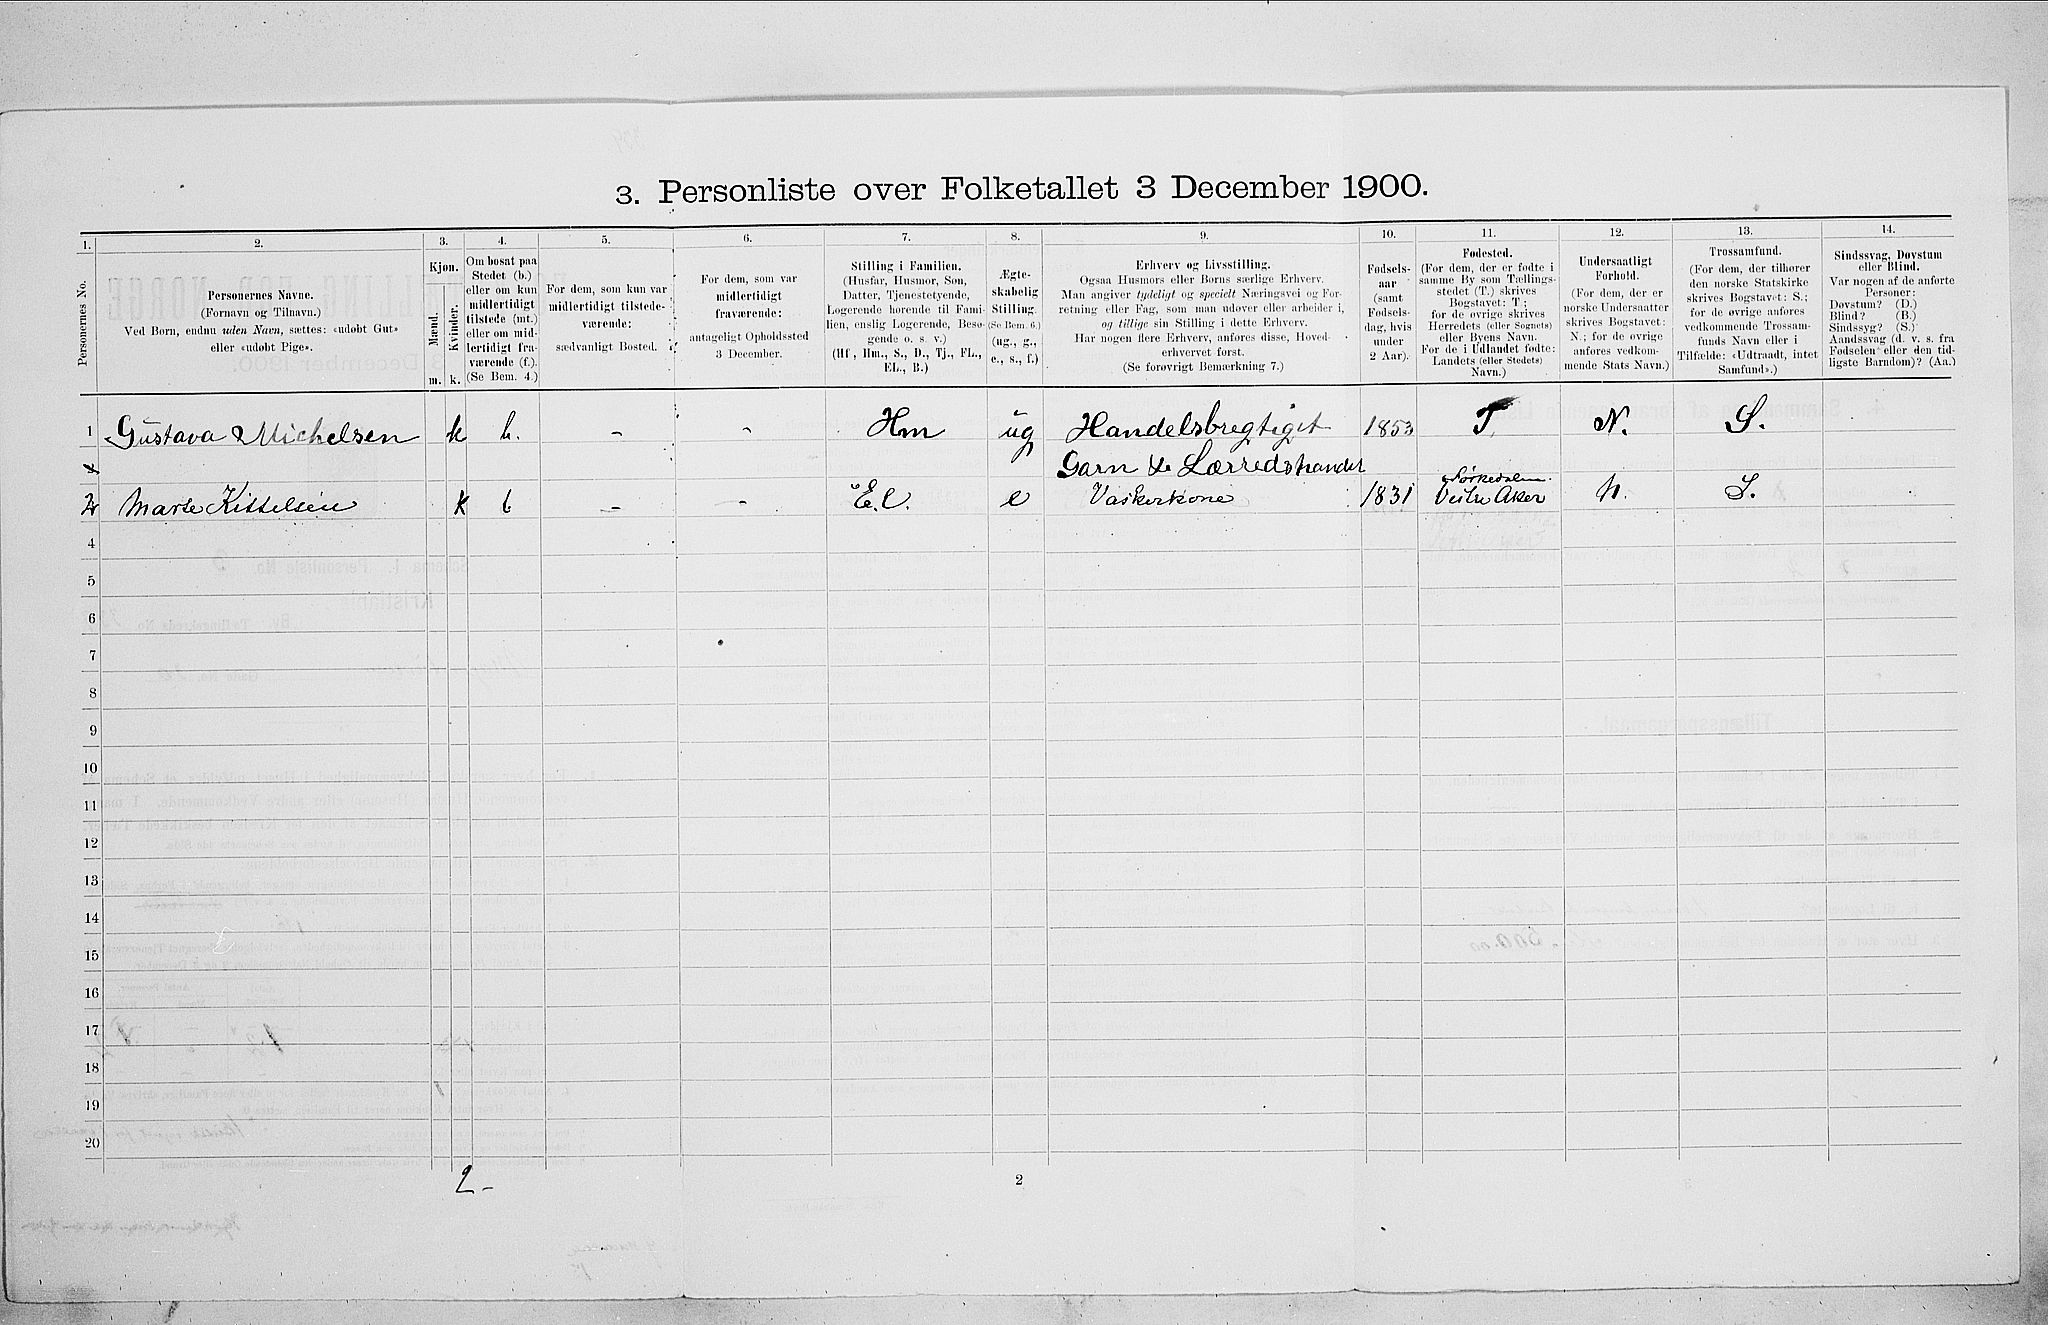 3. Personliste over Folketallet 3 December 1900.
1. 2. 3. 4. 5. 6. 7. 8. 9. 10. 11. 12. 13. 14.
Personernes No.
Personernes Navne.
(Fornavn og Tilnavn.)
Ved Børn, endnu uden Navn, sættes: «udøbt Gut»
eller «udøbt Pige».
Kjøn.
Mænd.
Kvinder.
m. k.
Om bosat paa
Stedet (b.)
eller om kun
midlertidigt
tilstede (mt.)
eller om mid-
lertidigt fra-
værende (f.).
(Se Bem. 4.)
For dem, som kun var
midlertidigt tilstede-
værende:
sædvanligt Bosted.
For dem, som var
midlertidigt
fraværende:
antageligt Opholdssted
3 December.
Stilling i Familien.
(Husfar, Husmor, Søn,
Datter, Tjenestetyende,
Logerende hørende til Fami-
lien, enslig Logerende, Besø-
gende o. s. v.)
(Hf., Hm., S., D., Tj., FL.,
EL., B.)
Ægte-
skabelig
Stilling.
(Se Bem. 6.)
(ug., g.,
e., s., f.)
Erhverv og Livsstilling.
Ogsaa Husmors eller Børns særlige Erhverv.
Man angiver tydeligt og specielt Næringsvei og For-
retning eller Fag, som man udøver eller arbeider i,
og tillige sin Stilling i dette Erhverv.
Har nogen flere Erhverv, anføres disse, Hoved-
erhvervet først.
(Se forøvrigt Bemærkning 7.)
Fødsels-
aar
(samt
Fødsels-
dag, hvis
under
2 Aar).
Fødested.
(For dem, der er fødte i
samme By som Tællings-
stedet (T.) skrives
Bogstavet: T.;
for de øvrige skrives
Herredets (eller Sognets)
eller Byens Navn.
For de i Udlandet fødte:
Landets (eller Stedets)
Navn.)
Undersaatligt
Forhold.
(For dem, der er
norske Undersaatter
skrives Bogstavet:
N.; for de øvrige
anføres vedkom-
mende Stats Navn.)
Trossamfund.
(For dem, der tilhører
den norske Statskirke
skrives Bogstavet: S.;
for de øvrige anføres
vedkommende Trossam-
funds Navn eller i
Tilfælde: «Udtraadt, intet
Samfund».)
Sindssvag, Døvstum
eller Blind.
Var nogen af de anførte
Personer:
Døvstum? (D.)
Blind? (B.)
Sindssyg? (S.)
Aandssvag (d. v. s. fra
Fødselen eller den tid-
ligste Barndom)? (Aa.)
1 Gustava Michelsen k b. - - Hm ug Handelsbregtiget 1853 T. N. S.
Garn & Lærredshandel
2 Marte Kittelsen k b - - E.l. e Vaskerkone 1831 Sørkedalen Vestre Aker N. S.
4
5
6
7
8
9
10
11
12
13
14
15
16
17
18
19
20
2-
2